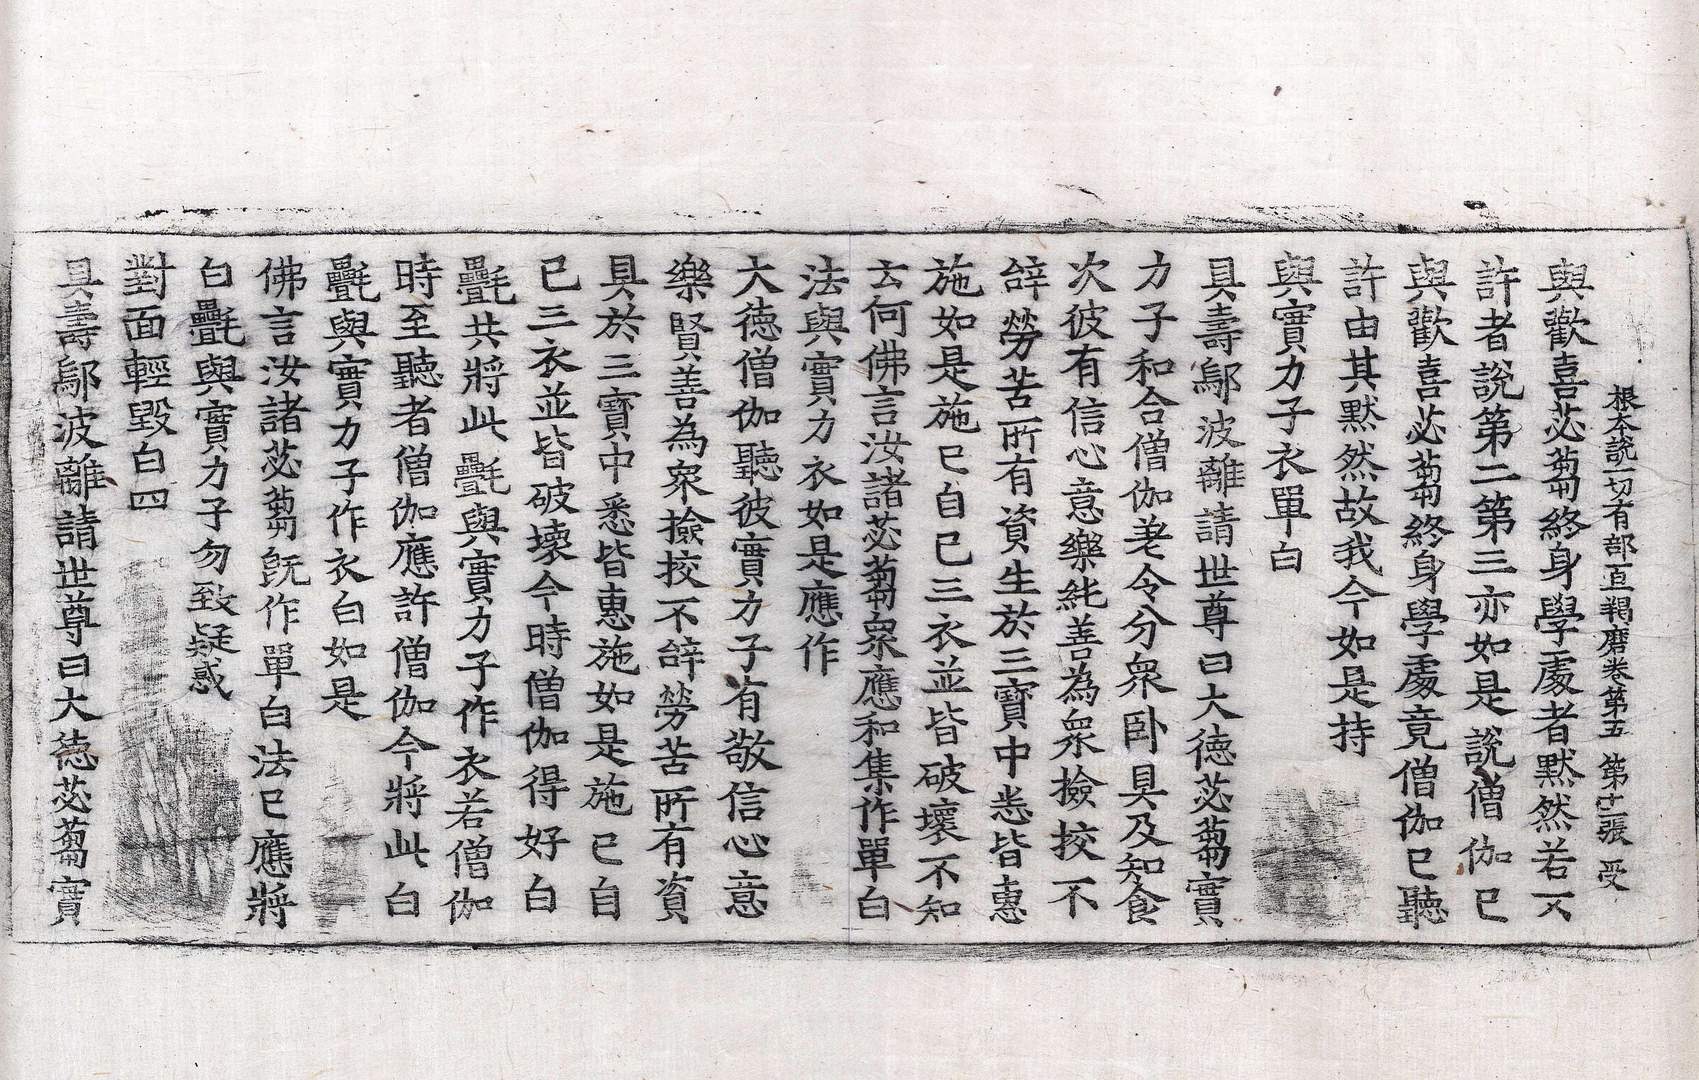 根本說一切有部百一羯磨卷第五 第十二張 受
與歡喜苾蒭終身學處者默然若不
許者說第二第三亦如是說僧伽已
與歡喜苾蒭終身學處竟僧伽已聽
許由其默然故我今如是持
與實力子衣單白
具壽鄔波離請世尊曰大德苾蒭實
力子和合僧伽差令分衆卧具及知食
次彼有信心意樂純善為衆撿挍不
辝勞苦所有資生於三寶中悉皆惠
施如是施已自己三衣並皆破壞不知
云何佛言汝諸苾蒭衆應和集作單白
法與實力衣如是應作
大德僧伽聽彼實力子有敬信心意
樂賢善為衆撿挍不辝勞苦所有資
具於三寶中悉皆惠施如是施已自
已三衣並皆破壞今時僧伽得好白
㲲共將此㲲與實力子作衣若僧伽
時至聽者僧伽應許僧伽今將此白
㲲與實力子作衣白如是
佛言汝諸苾蒭旣作單白法已應將
白㲲與實力子勿致疑惑
對面輕毀白四
具壽鄔波離請世尊曰大德苾蒭實